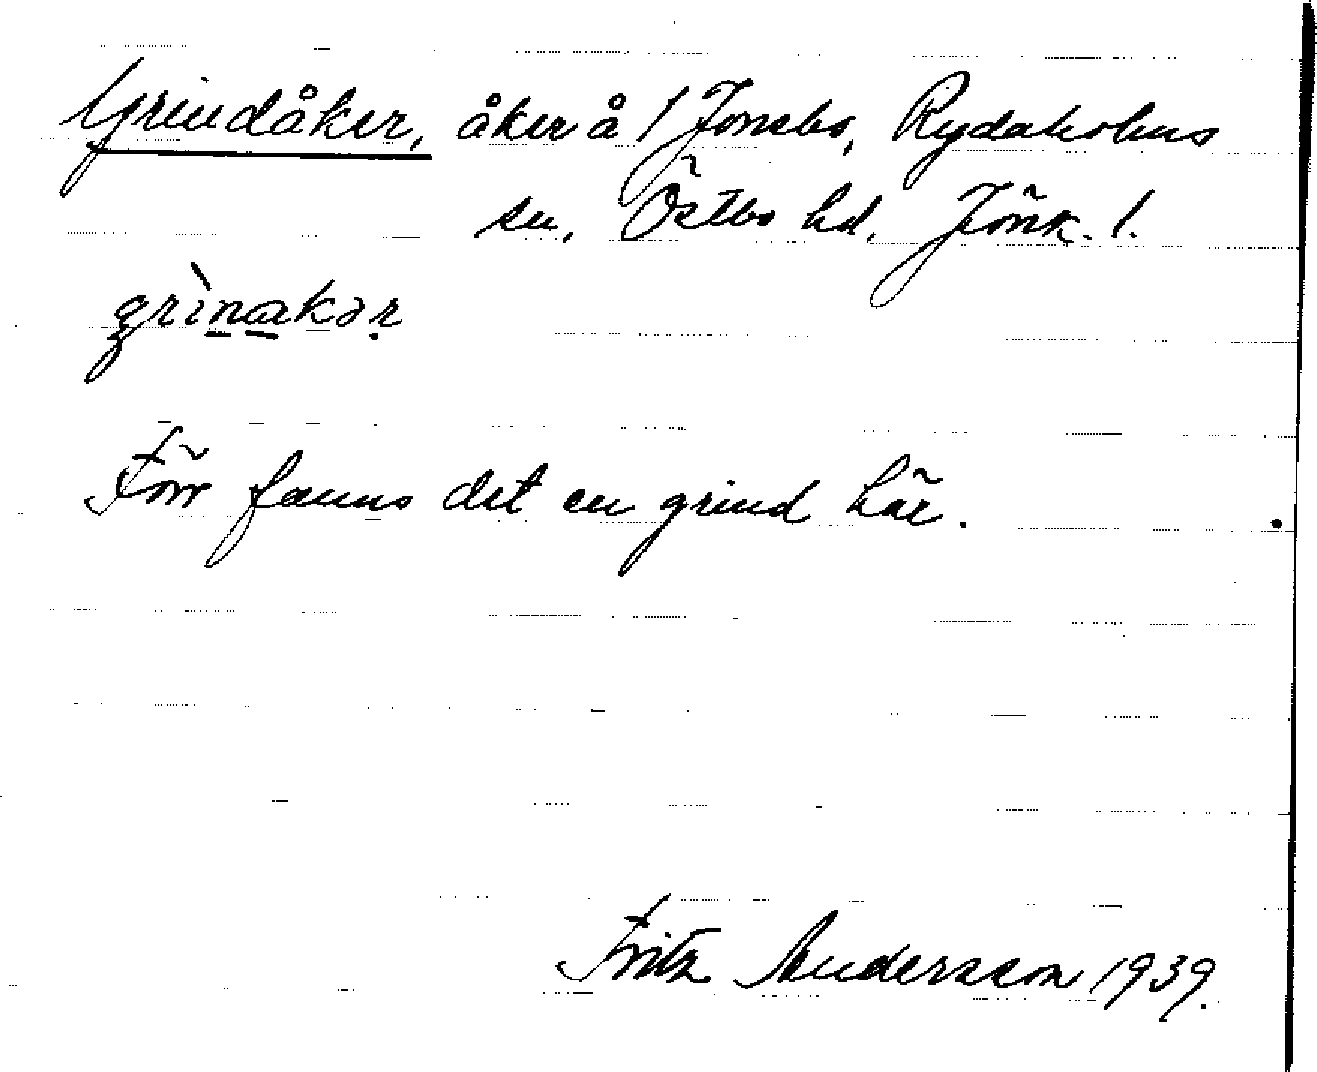 Grindåker, åker å 1 Jonsbo, Rydaholms
sn, Östbo hd. Jönk. l.
grìnakər
Förr fanns det en grind här.
Fritz Andersson 1939.